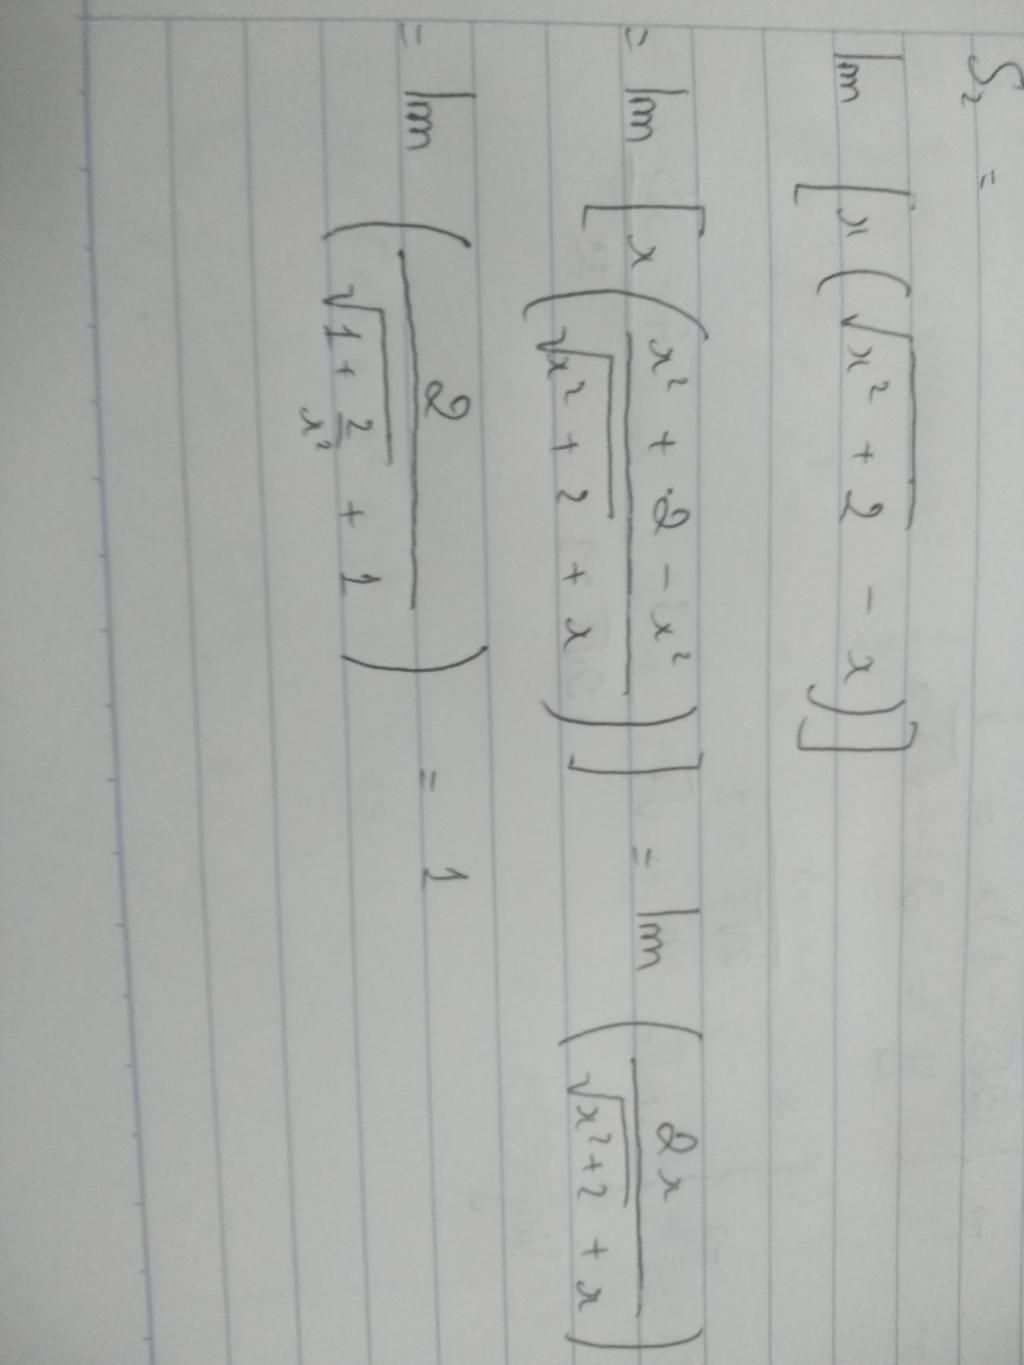 S₂ =
lim [x(√(x² + 2) - x)]
= lim [x((x² + 2 - x²)/(√(x² + 2) + x))] = lim (2x/(√(x²+2) + x))
= lim (2/(√(1 + 2/x²) + 1)) = 1